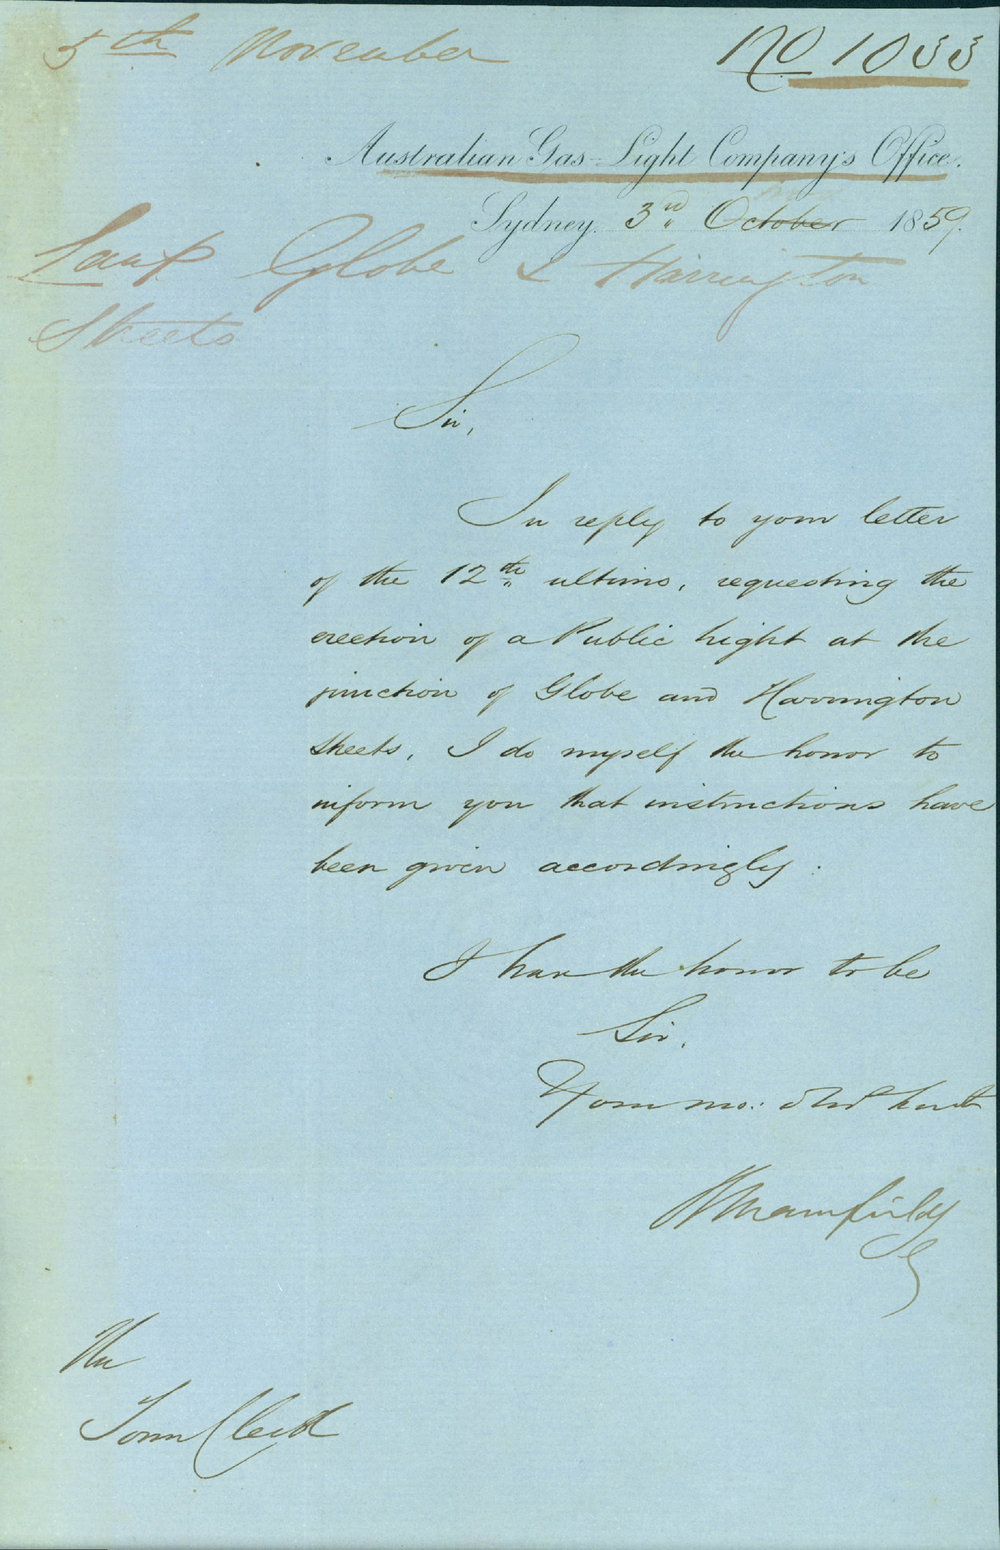 5th November
No 1033
Australian Gas-Light Company's Office.
Sydney. 3rd October 1859.
Lamp Globe & Harrington
Streets
Sir,
In reply to your letter
of the 12th ultimo, requesting the
erection of a Public Light at the
junction of Globe and Harrington
Streets, I do myself the honor to
inform you that instructions have
been given accordingly.
I have the honor to be
Sir,
Your mo: obt Servt
Mansfield
The
Town Clerk